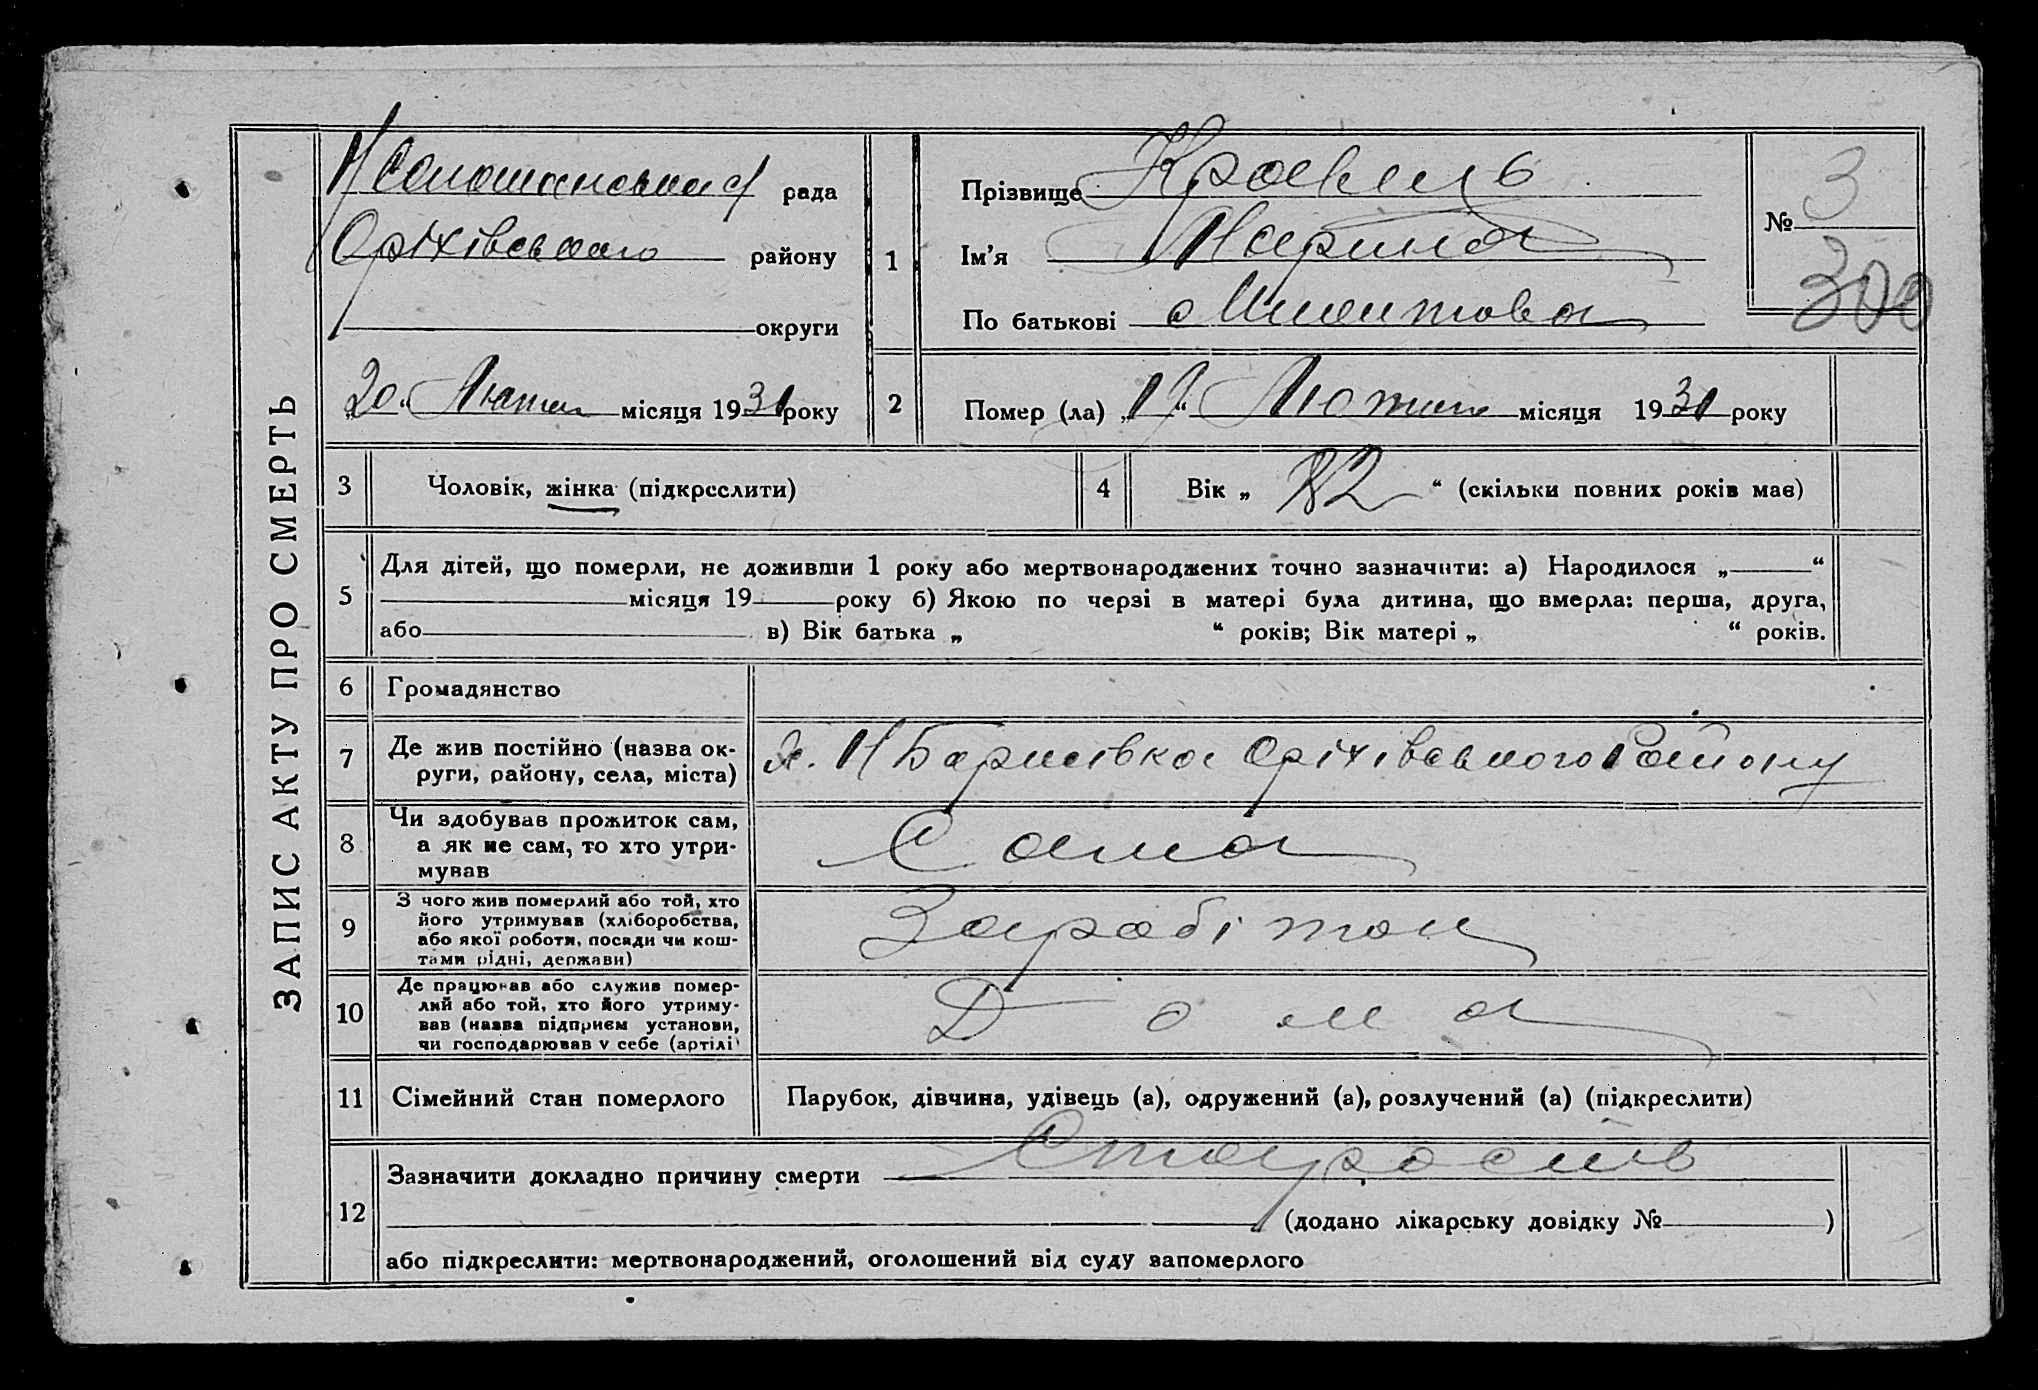 ЗАПИС АКТУ ПРО СМЕРТЬ
рада
Оріхівського району
округи
„20“ Лютого місяця 1931 року
1
Прізвище Кравець
Ім'я Марина
По батькові
№ 3
300
2
Помер (ла) „19“ Лютого місяця 1931 року
3
Чоловік, жінка (підкреслити)
4
Вік „82“ (скільки повних років має)
5
Для дітей, що померли, не доживши 1 року або мертвонароджених точно зазначити: а) Народилося „ “
місяця 19 року б) Якою по черзі в матері була дитина, що вмерла: перша, друга,
або в) Вік батька „ “ років; Вік матері „ “ років.
6
Громадянство
7
Де жив постійно (назва ок-
руги, району, села, міста)
Х. Н Борисівка Оріхівського Району
8
Чи здобував прожиток сам,
а як не сам, то хто утри-
мував
Сама
9
З чого жив померлий або той, хто
його утримував (хліборобства,
або якої роботи, посади чи кош-
тами рідні, держави)
10
Де працював або служив помер-
лий або той, хто його утриму-
вав (назва підприєм установи,
чи господарював у себе (артілі)
Дома
11
Сімейний стан померлого
Парубок, дівчина, удівець (а), одружений (а), розлучений (а) (підкреслити)
12
Зазначити докладно причину смерти Старость
(додано лікарську довідку № )
або підкреслити: мертвонароджений, оголошений від суду запомерлого